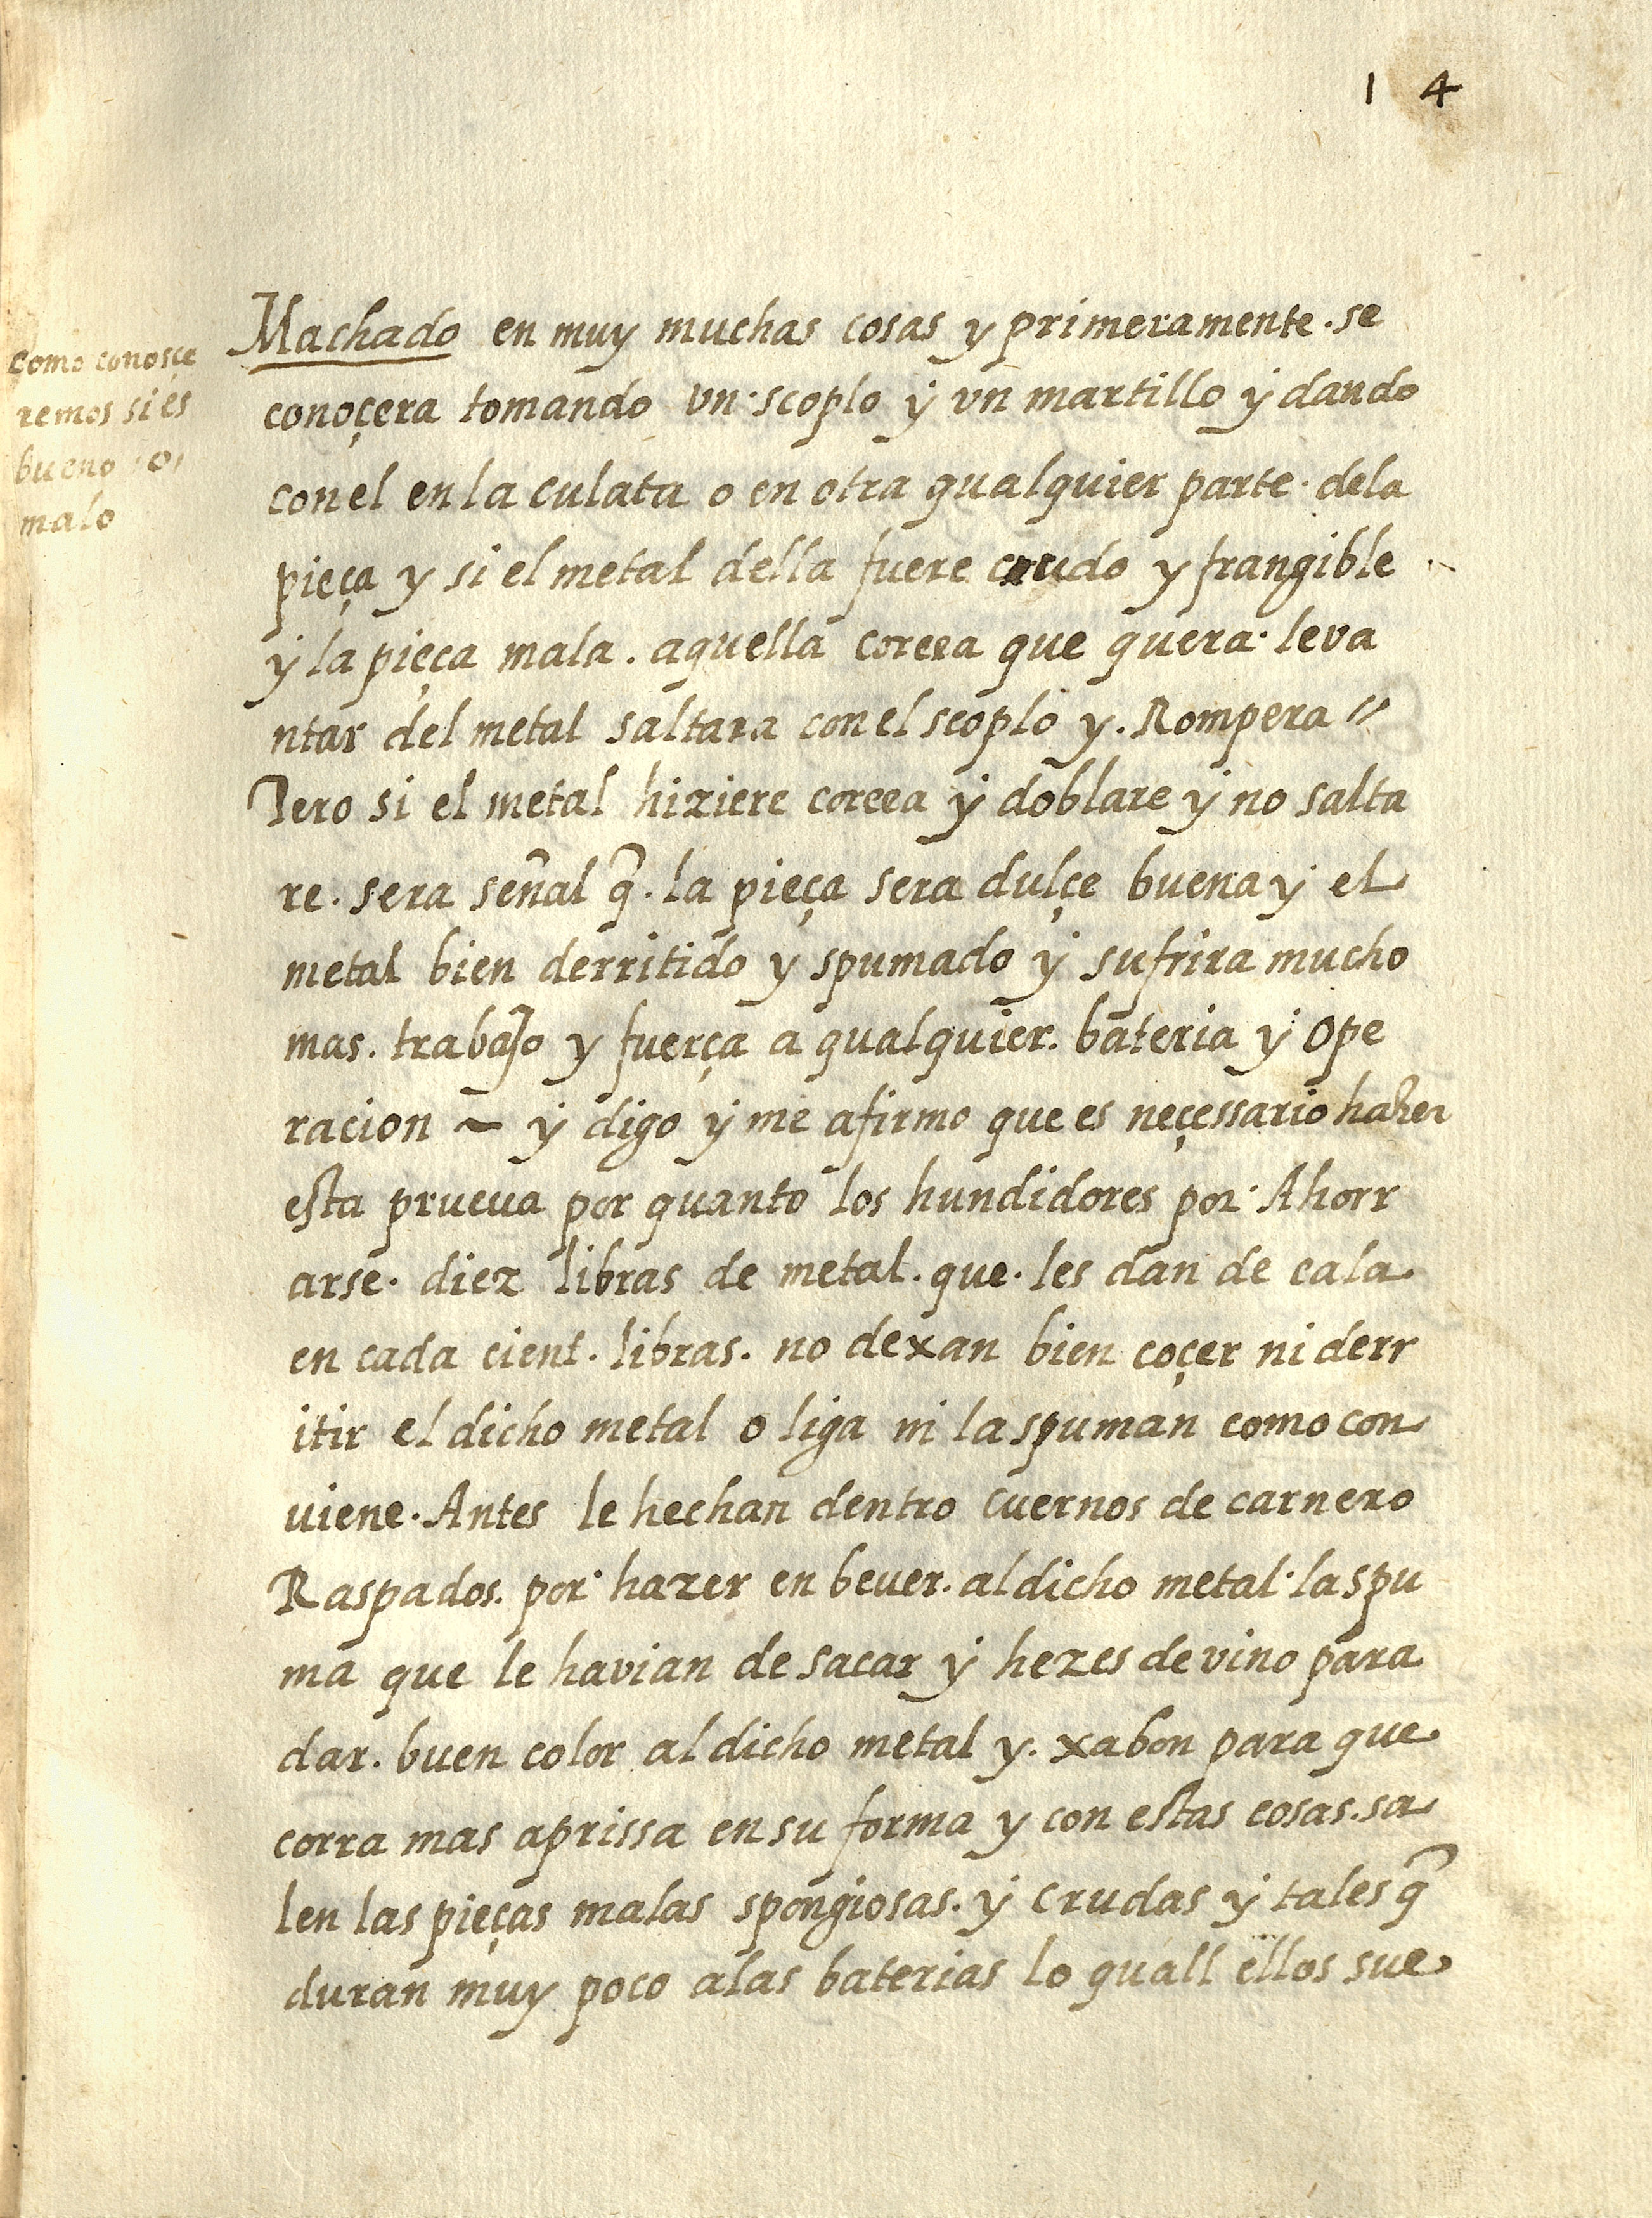 1 4
Machado en muy muchas cosas y primeramente. se
conoçera tomando vn scoplo ÿ vn martillo ÿ dando
con el en la culata o en otra qualquier parte. dela
pieça y si el metal della fuere crudo y frangible
ÿ la pieça mala. aquella correa que quera leva
ntar del metal saltara con el scoplo y. Rompera //
Pero si el metal hiziere correa ÿ doblare ÿ no salta
re. sera señal q̃. la pieça sera dulçe buena ÿ el
metal bien derritido y spumado ÿ sufrira mucho
mas. trabajo y fuerça a qualquier. bateria ÿ ope
racion ~ ÿ digo ÿ me afirmo que es neçessario hazer
esta prueva por quanto los hundidores por. Ahorr
arse. diez libras de metal. que. les dan de cala
en cada cient. libras. no dexan bien coçer ni derr
itir el dicho metal o liga ni la spuman como con
uiene. Antes le hechan dentro cuernos de carnero
Raspados. por hazer en bever. al dicho metal. la spu
ma que le havian de sacar ÿ hezes de vino para
dar. buen color al dicho metal y. xabon para que
corra mas aprissa en su forma y con estas cosas. sa
len las pieças malas spongiosas. ÿ crudas ÿ tales q̃
duran muy poco alas baterias lo quall ellos sue
como conosçe
remos si es
bueno o
malo